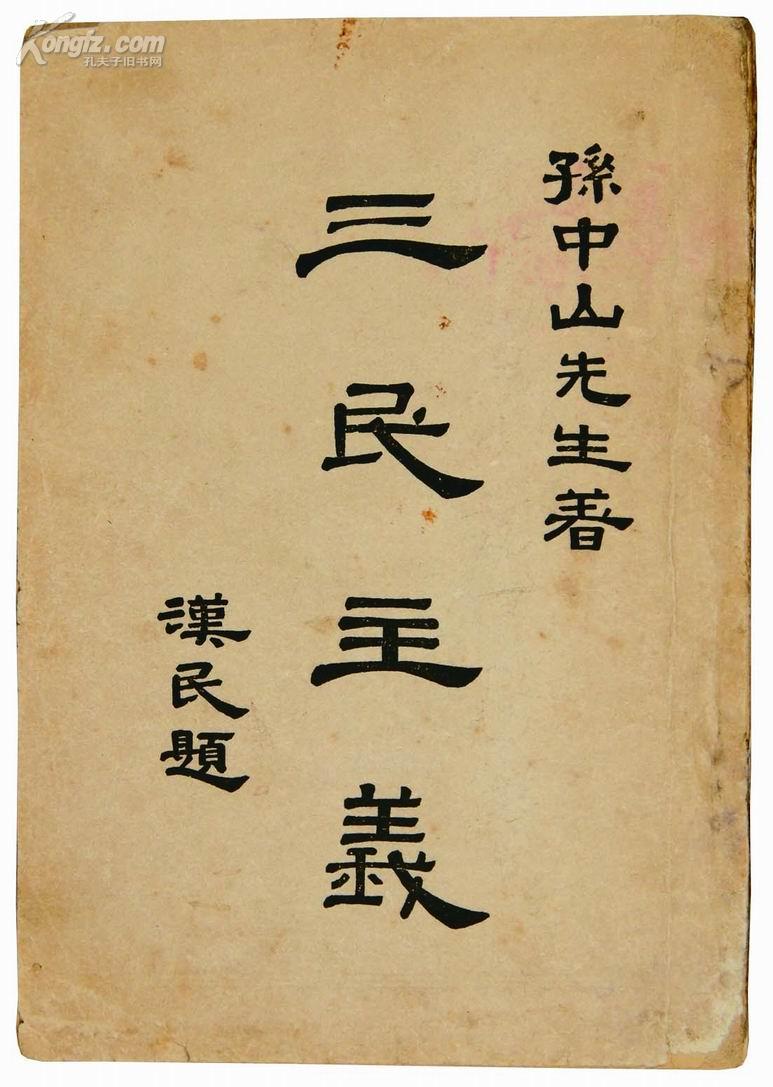 Kongfz.com
孔夫子旧书网
孫中山先生著
三民主義
漢民題